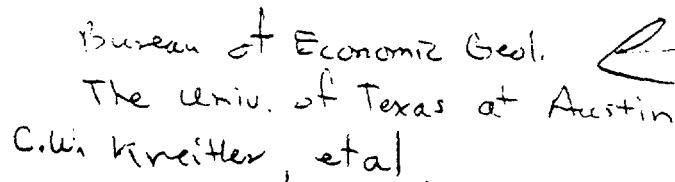 Bureau of Economic Geol.
The Univ. of Texas at Austin
C.W. Kreitler, et al.